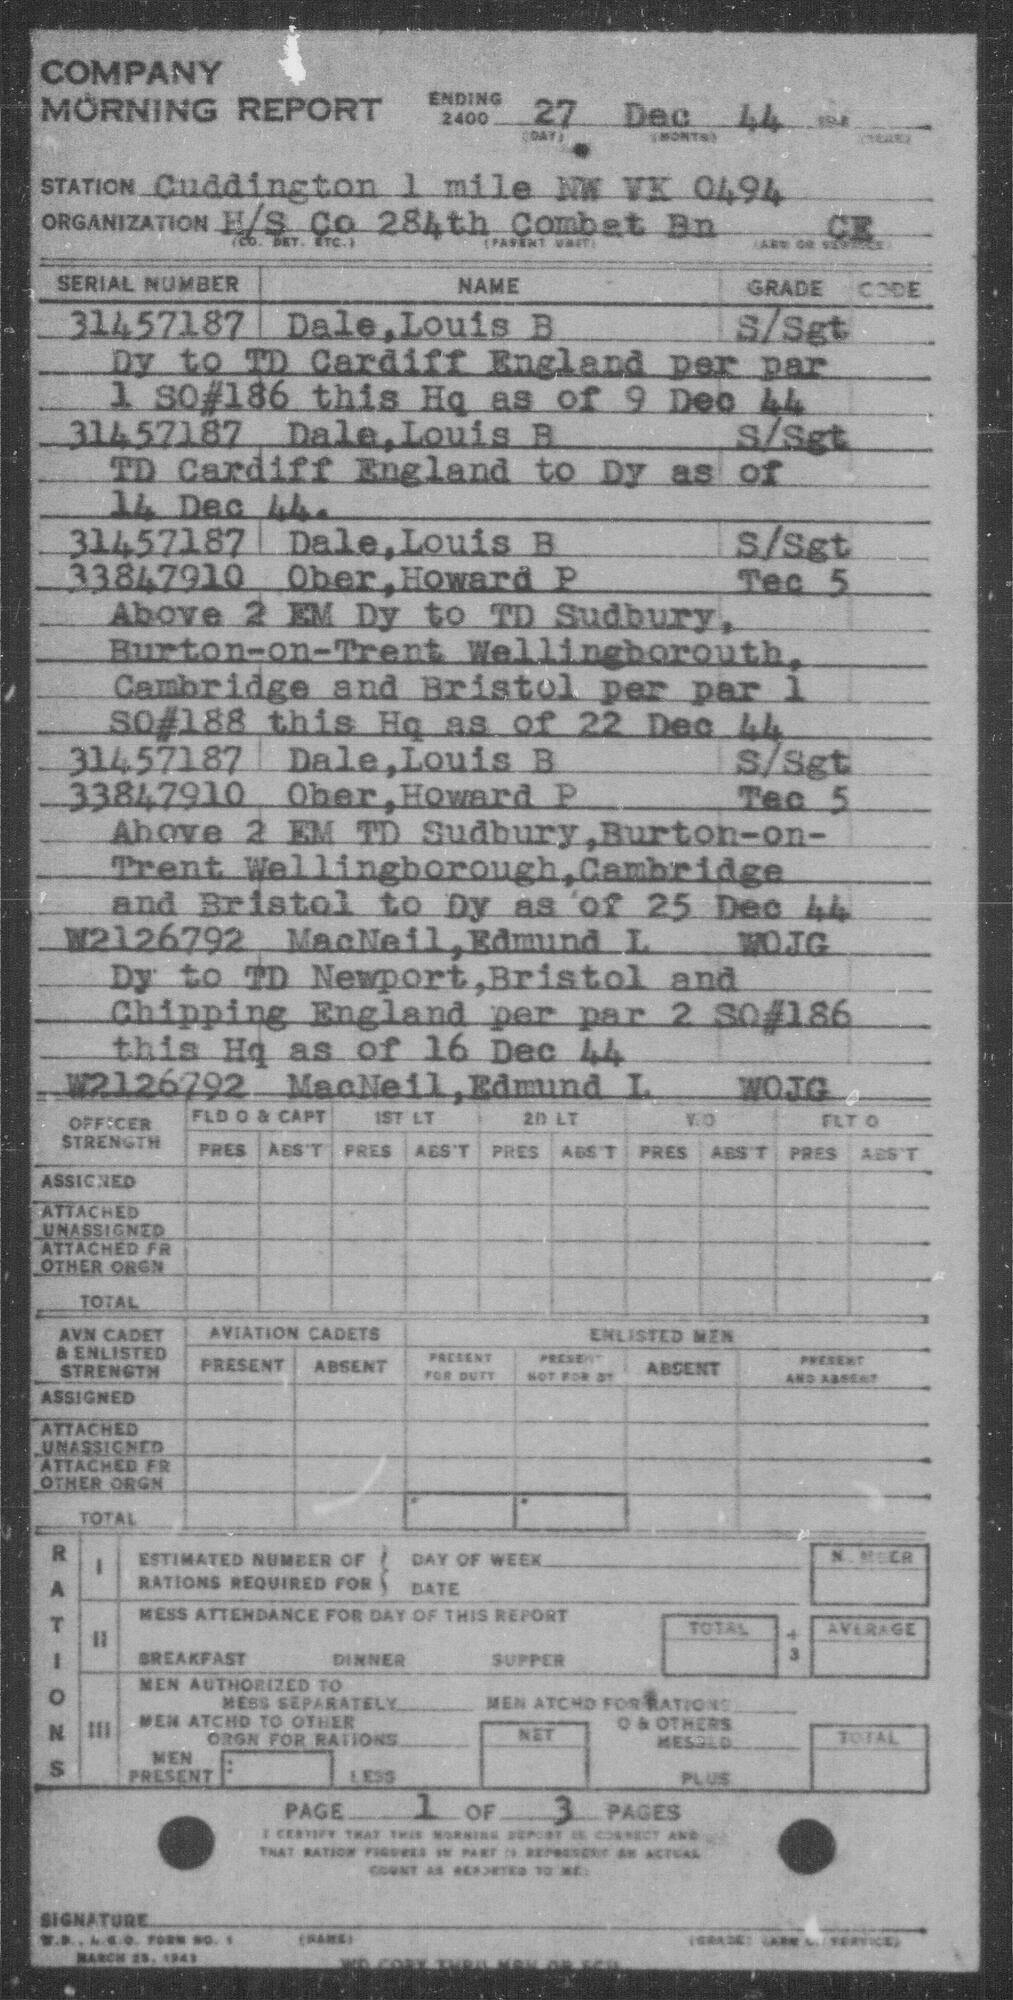 COMPANY
MORNING REPORT ENDING 2400 27 Dec 44
(DAY) (MONTH) (YEAR)
STATION Cuddington 1 mile NW VK 0494
ORGANIZATION H/S Co 284th Combat Bn CE
(CO. DET. ETC.) (PARENT UNIT) (ARM OR SERVICE)
SERIAL NUMBER NAME GRADE CODE
31457187 Dale,Louis B S/Sgt
Dy to TD Cardiff England per par
1 SO#186 this Hq as of 9 Dec 44
31457187 Dale,Louis B S/Sgt
TD Cardiff England to Dy as of
14 Dec 44.
31457187 Dale,Louis B S/Sgt
33847910 Ober,Howard P Tec 5
Above 2 EM Dy to TD Sudbury,
Burton-on-Trent Wellingborouth,
Cambridge and Bristol per par 1
SO#188 this Hq as of 22 Dec 44
31457187 Dale,Louis B S/Sgt
33847910 Ober,Howard P Tec 5
Above 2 EM TD Sudbury,Burton-on-
Trent Wellingborough,Cambridge
and Bristol to Dy as of 25 Dec 44
W2126792 MacNeil,Edmund L WOJG
Dy to TD Newport,Bristol and
Chipping England per par 2 SO#186
this Hq as of 16 Dec 44
W2126792 MacNeil,Edmund L WOJG
OFFICER STRENGTH FLD O & CAPT 1ST LT 2D LT W O FLT O
PRES ABS'T PRES ABS'T PRES ABS'T PRES ABS'T PRES ABS'T
ASSIGNED
ATTACHED UNASSIGNED
ATTACHED FR OTHER ORGN
TOTAL
AVN CADET & ENLISTED STRENGTH AVIATION CADETS ENLISTED MEN
PRESENT ABSENT PRESENT FOR DUTY PRESENT NOT FOR DY ABSENT PRESENT AND ABSENT
ASSIGNED
ATTACHED UNASSIGNED
ATTACHED FR OTHER ORGN
TOTAL
RATIONS
I ESTIMATED NUMBER OF RATIONS REQUIRED FOR DAY OF WEEK DATE NUMBER
II MESS ATTENDANCE FOR DAY OF THIS REPORT TOTAL ÷ 3 AVERAGE
BREAKFAST DINNER SUPPER
III MEN AUTHORIZED TO MESS SEPARATELY MEN ATCHD FOR RATIONS
MEN ATCHD TO OTHER ORGN FOR RATIONS NET O & OTHERS MESSED TOTAL
MEN PRESENT LESS PLUS
PAGE 1 OF 3 PAGES
I CERTIFY THAT THIS MORNING REPORT IS CORRECT AND
THAT RATION FIGURES IN PART II REPRESENT AN ACTUAL
COUNT AS REPORTED TO ME:
SIGNATURE
W.D., A.G.O. FORM NO. 1 (NAME) (GRADE) (ARM OR SERVICE)
MARCH 25, 1943
WD COPY THRU MRU OR